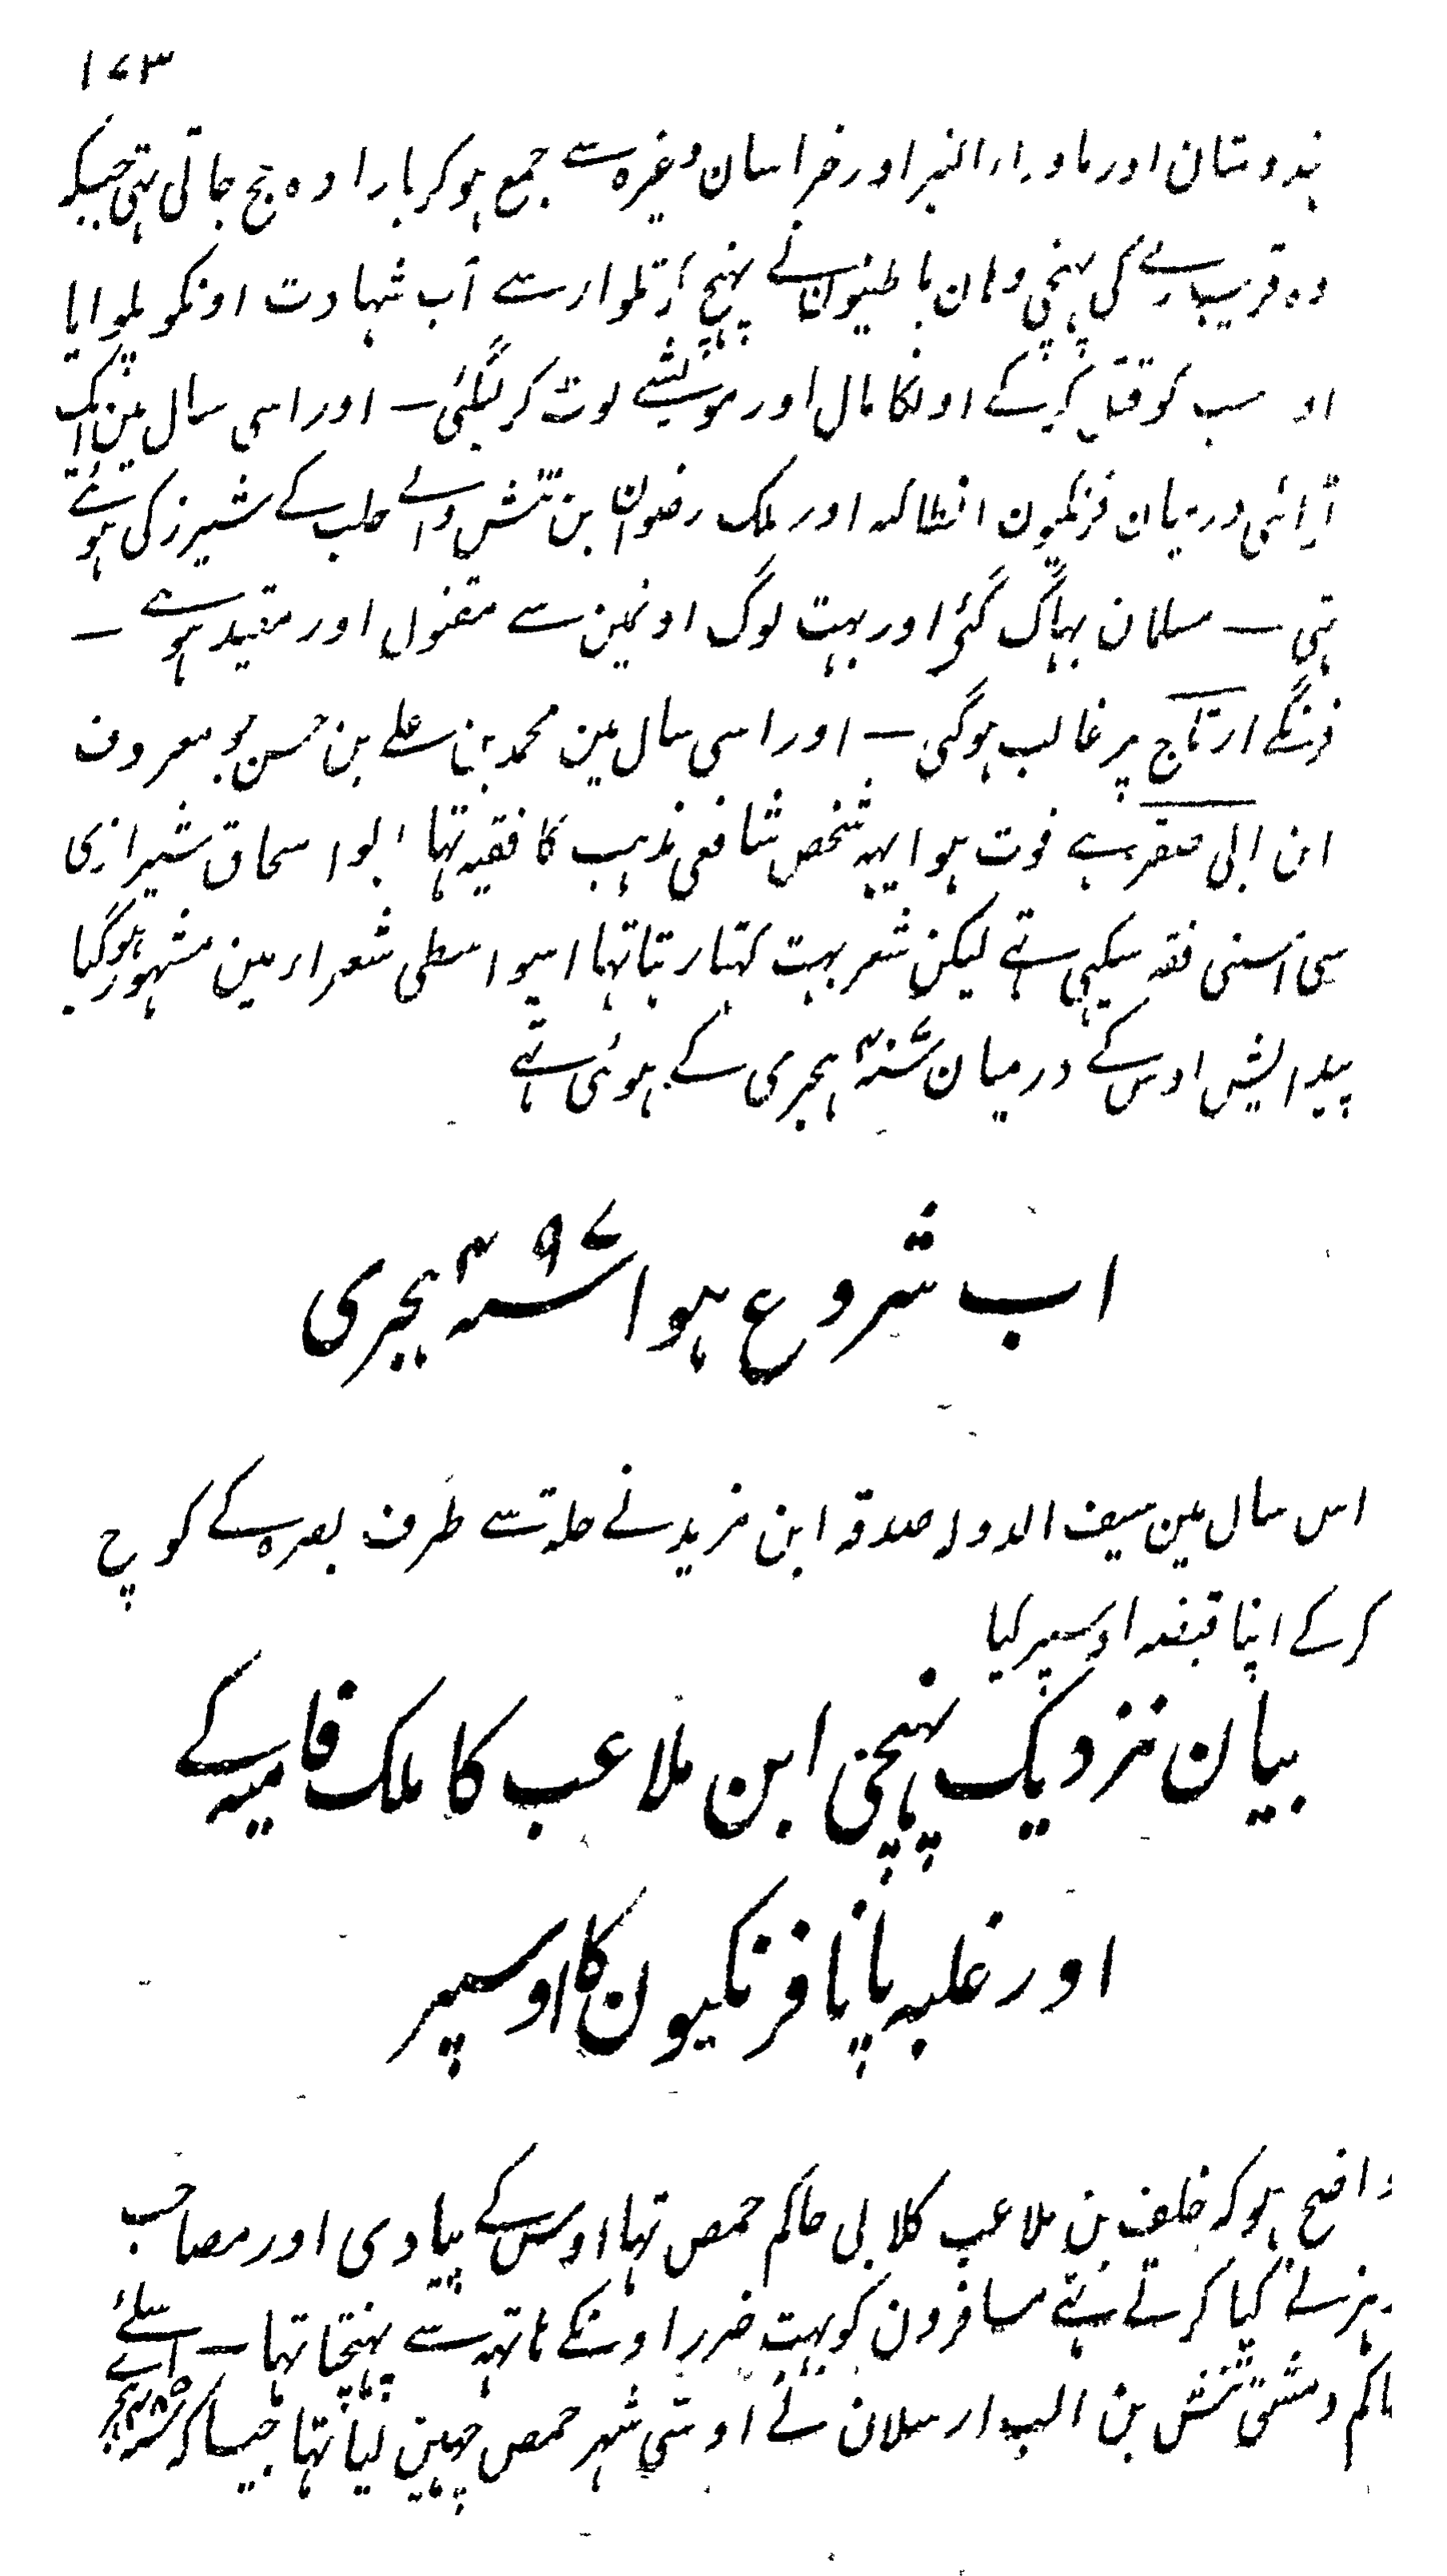 ۱۷۳
ہندوستان اور ماوراء النہر اور خراسان وغیرہ سے جمع ہوکر بارادہ حج جاتی تہی جبکہ
وہ قریب رے کی پہنچی وہان باطنیون نے پہنچ کر تلوار سے آب شہادت اونکو پلوایا
او سب کو قتل کرکے اونکا مال اور مویشے لوٹ کر لیگئی ــ اور اسی سال مین ایک
لڑائی درمیان فرنگیون انطاکہ اور ملک رضوان بن تتش والے حلب کے شیزر کی ہوئے
تہی ــ مسلمان بہاگ گئی اور بہت لوگ اونمین سے مقتول اور مقید ہوے ــ
فرنگے ارتاج پر غالب ہوگی ــ اور اسی سال مین محمد بن علے بن حسن جو معروف
ابن ابی صقر ہے فوت ہوا یہہ شخص شافعی مذہب کا فقیہ تہا ابو اسحاق شیرازی
سی اسنی فقہ سیکہی تہے لیکن شعر بہت کہتا رہتا تہا اسواسطی شعراء مین مشہور ہوگیا
پیدایش اوس کے درمیان سنہ۴ ہجری کے ہوئی تہے
اب شروع ہوا سنہ۴۹۷ ہجری
اس سال مین سیف الدولہ صدقہ ابن مزید نے حلہ سے طرف بصرہ کے کوچ
کرکے اپنا قبضہ اوسپر کیا
بیان نزدیک پہنچنی ابن ملاعب کا ملک فامیہ کے
اور غلبہ پانا فرنکیون کا اوسپر
واضح ہو کہ خلف بن ملاعب کلابی حاکم حمص تہا اوس کے پیادی اور مصاحب
رہزنے کیا کرتے تہے مسافرون کو بہت ضرر اونکے ہاتہہ سے پہنچتا تہا ــ اسلئے
حاکم دمشق تتش بن الپ ارسلان نے اوسی شہر حمص چہین لیا تہا جیسا کہ سنہ۴۸۵ ہجر